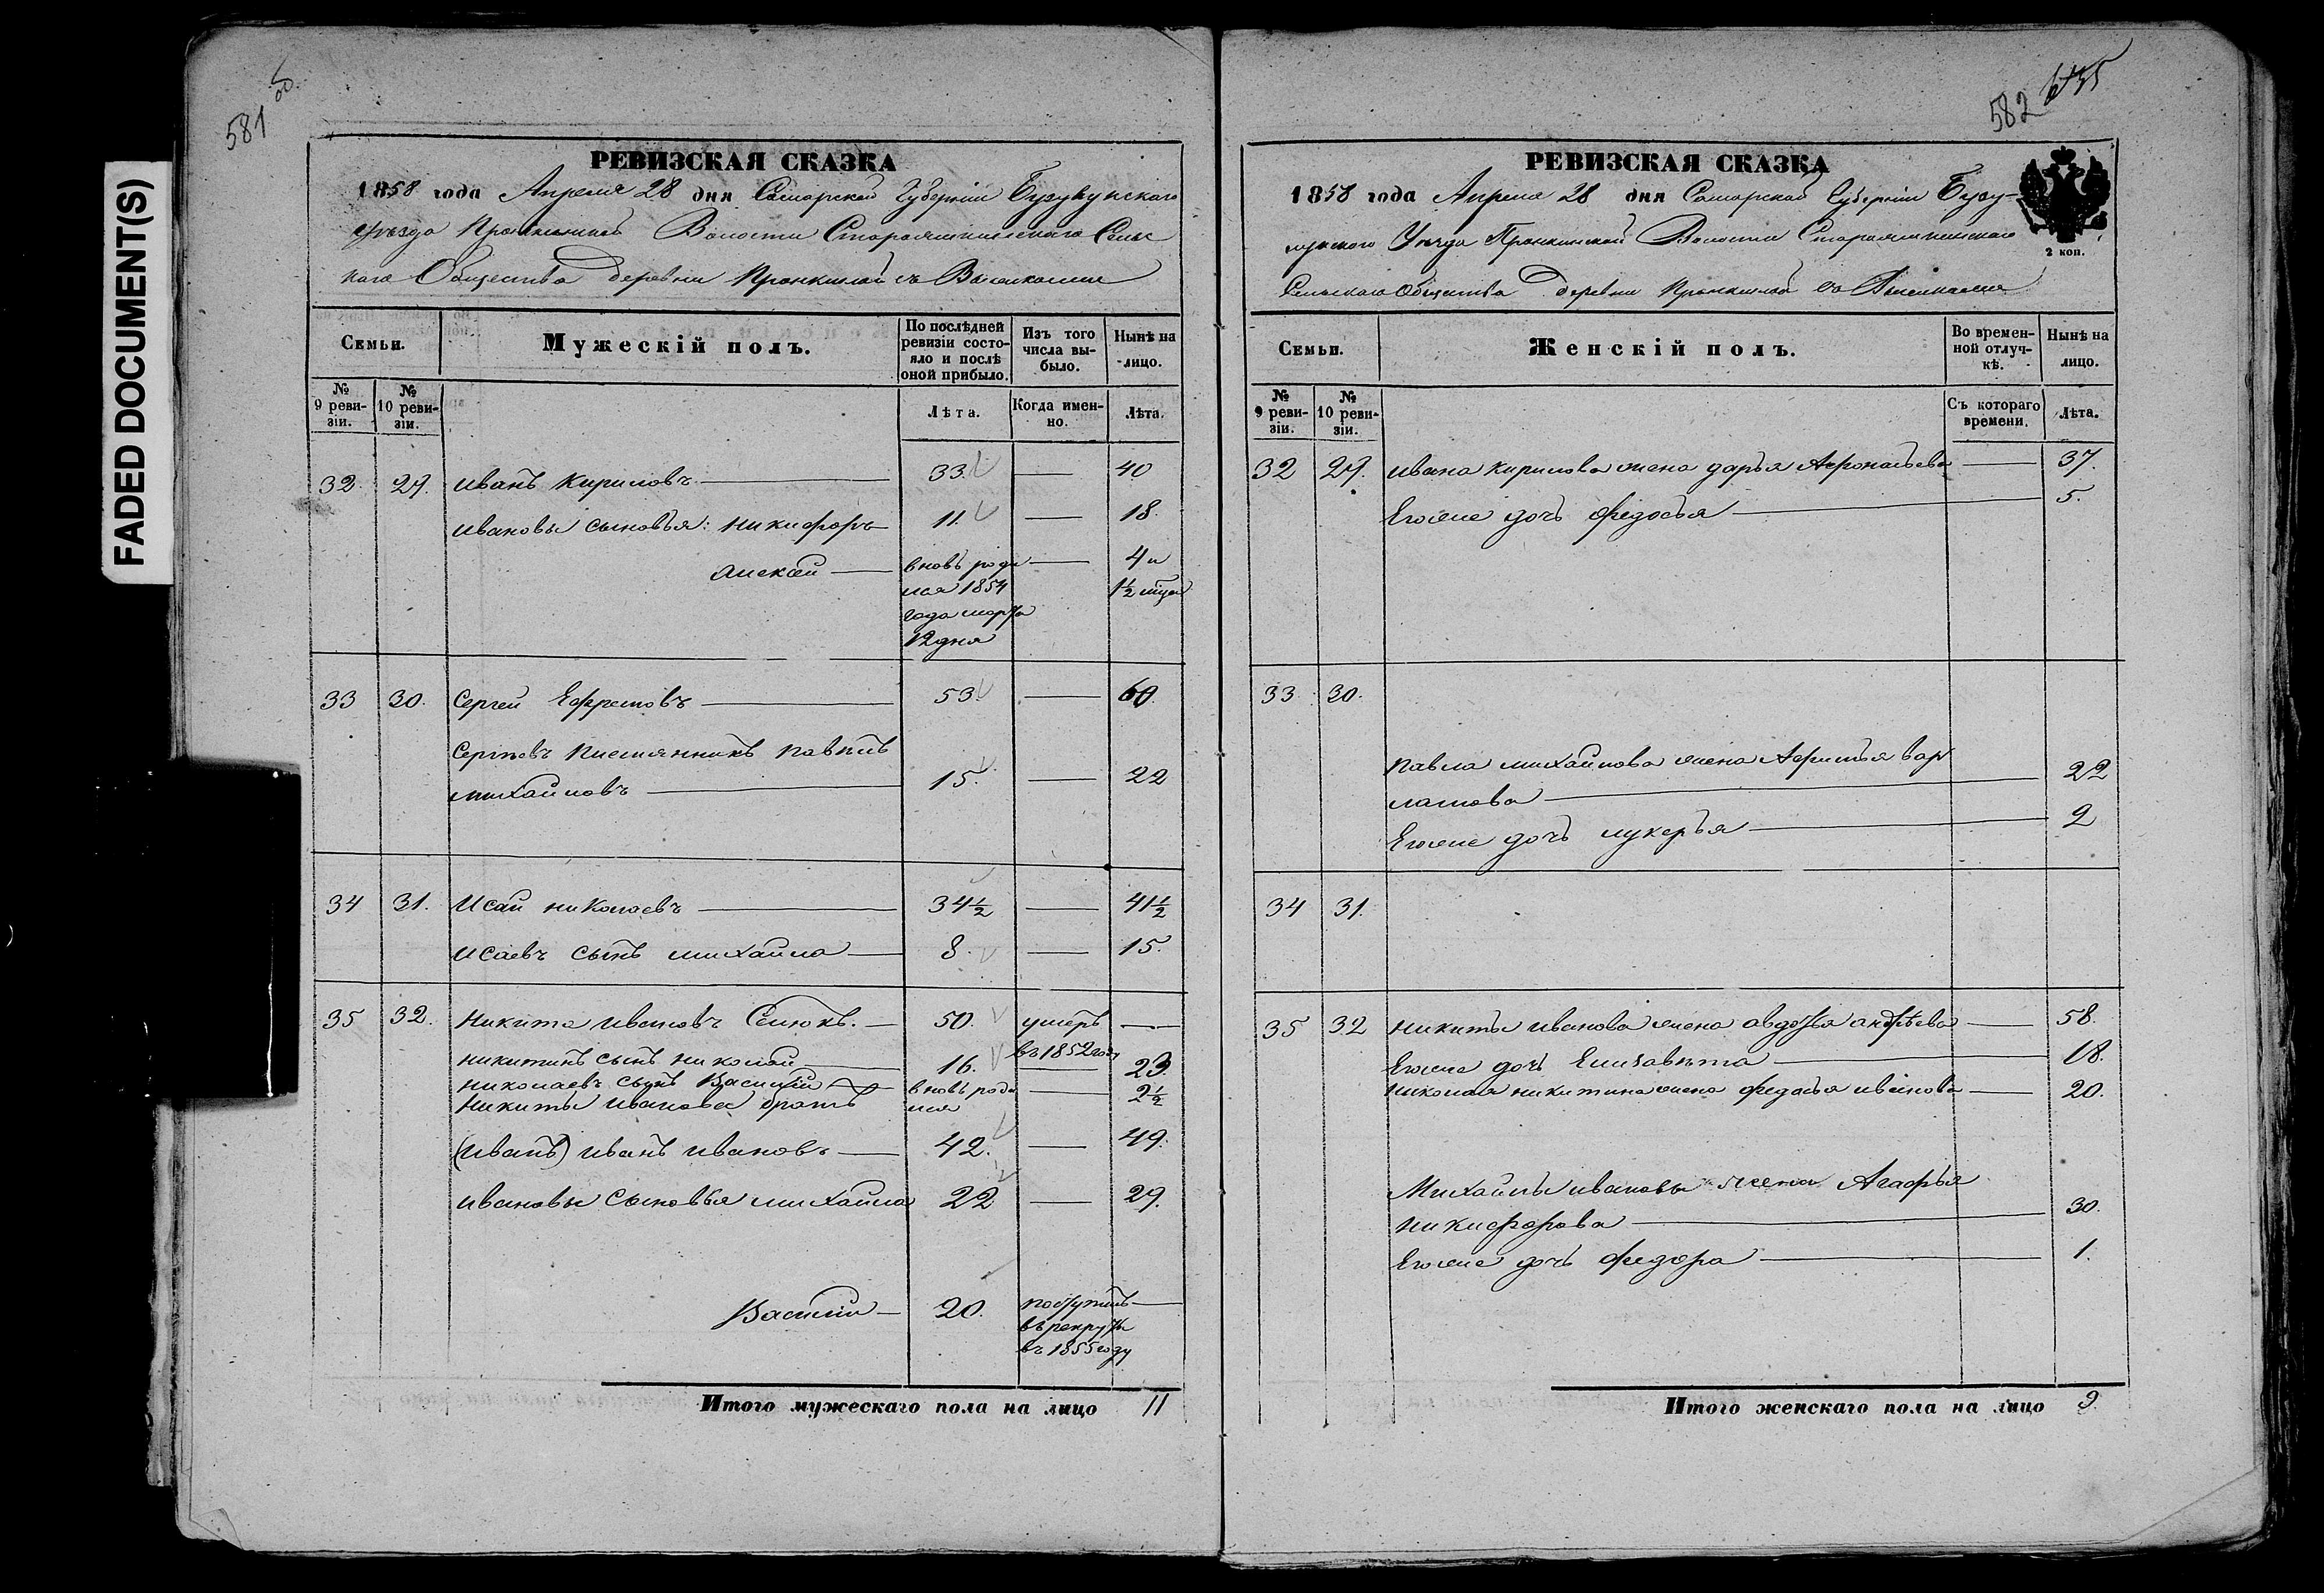 FADED DOCUMENT(S)
581
РЕВИЗСКАЯ СКАЗКА
1858 года Апреля 28 дня Самарской Губерніи Бузулукскаго
уѣзда Пронкинской Волости Староягипскаго Сельс
каго Общества деревни Пронкиной съ Выселками
Семьи.
Мужескій полъ.
По послѣдней ревизіи состояло и послѣ оной прибыло.
Изъ того числа выбыло.
Нынѣ на лицо.
№ 9 ревизіи.
№ 10 ревизіи.
Лѣта.
Когда именно.
Лѣта.
32. 29. Иванъ Кириловъ 33. 40
Ивановы сыновья: Никифоръ 11. 18.
Алексѣй вновь роди 4 и
лся 1854 1½ мѣца
года марта
12 дня
33 30. Сергей Ефремовъ 53. 60.
Сергѣевъ племянникъ Павелъ
Михайловъ 15. 22
34 31. Исай Николаевъ 34½ 41½
Исаевъ сынъ Михайла 8. 15.
35 32. Никита Ивановъ 50. умеръ
въ 1852 году
Никитинъ сынъ Николай 16. 23.
Николаевъ сынъ Василий вновь роди 2½
Никиты Иванова братъ лся
(Иванъ) Иванъ Ивановъ 42. 49.
Ивановы сыновья Михайла 22 29.
Василий 20. поступилъ
въ рекруты
въ 1855 году
Итого мужескаго пола на лицо 11
582
РЕВИЗСКАЯ СКАЗКА
2 коп.
1858 года Апреля 28 дня Самарской Губерніи Бузу-
лукского Уѣзда Пронкинской Волости
Сельскаго Общества деревни Пронкиной со Выселками
Семьи.
Женскій полъ.
Во временной отлучкѣ.
Нынѣ на лицо.
№ 9 ревизіи.
№ 10 ревизіи.
Съ котораго времени.
Лѣта.
32 29. Ивана Кирилова жена Дарья Афонасьева 37.
Егожие дочь Федосья 5.
33 30.
Павла Михайлова жена Афимья Вар
ламова 22
Егожие дочь Лукерья 2
34 31.
35 32 Никиты Иванова жена Авдотья Андрѣева 58.
Егожие дочь Елизавѣта 18.
Николая Никитина жена Федосья Иванова 20.
Михайлы Ивановы жена Агафья
Никифорова 30.
Егожие дочь Федора 1.
Итого женскаго пола на лицо 9